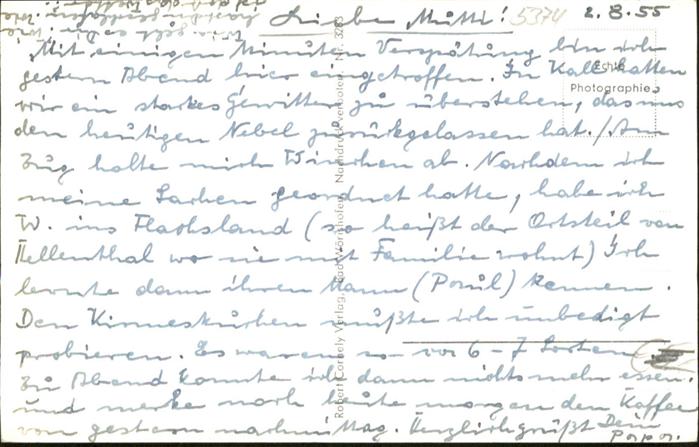 Liebe Mutti! 5374 2.8.55
Mit einigen Minuten Verspätung bin ich
gestern Abend hier eingetroffen. In Kall hatten
wir ein starkes Gewitter zu überstehen, das uns
den heutigen Nebel zurückgelassen hat. / Am
Zug holte mich Winchen ab. Nachdem ich
meine Sachen geordnet hatte, habe ich
W. ins Flachsland (so heißt der Ortsteil von
Hellenthal wo sie mit Familie wohnt) Ich
lernte dann ihren Mann (Paul) kennen.
Den Kirmeskuchen mußte ich unbedigt
probieren. Es waren so vor 6-7 Sorten
zu Abend konnte ich dann nichts mehr essen.
und merke noch heute morgen den Kaffee
von gestern nachmittag. Herzlich grüßt Dein
Echte
Photographie
Robert Cornely Verlag, Bad Wörishofen. Nachdruck verboten. Nr. 3283